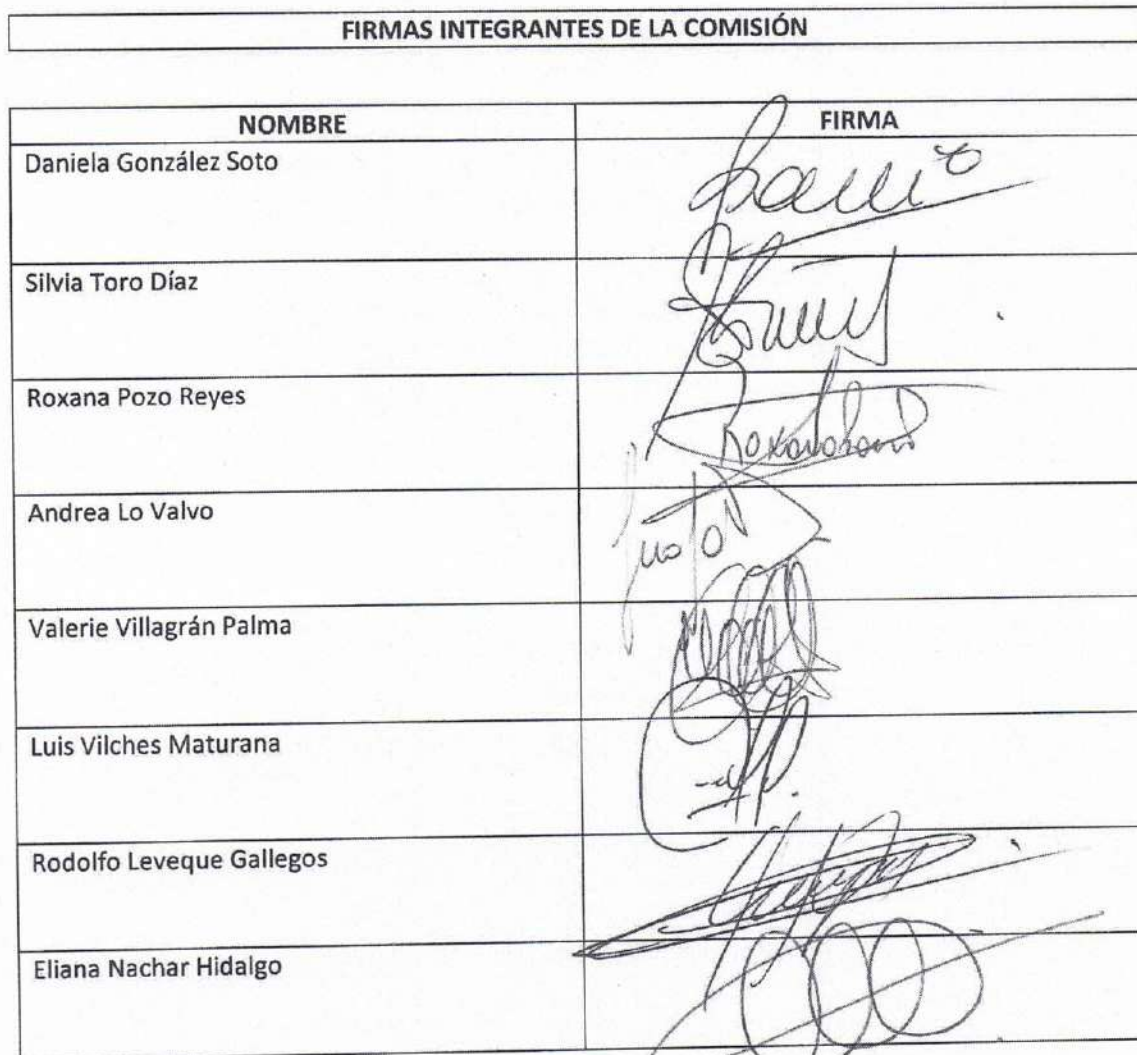 FIRMAS INTEGRANTES DE LA COMISIÓN
NOMBRE FIRMA
Daniela González Soto
Silvia Toro Díaz
Roxana Pozo Reyes
Andrea Lo Valvo
Valerie Villagrán Palma
Luis Vilches Maturana
Rodolfo Leveque Gallegos
Eliana Nachar Hidalgo